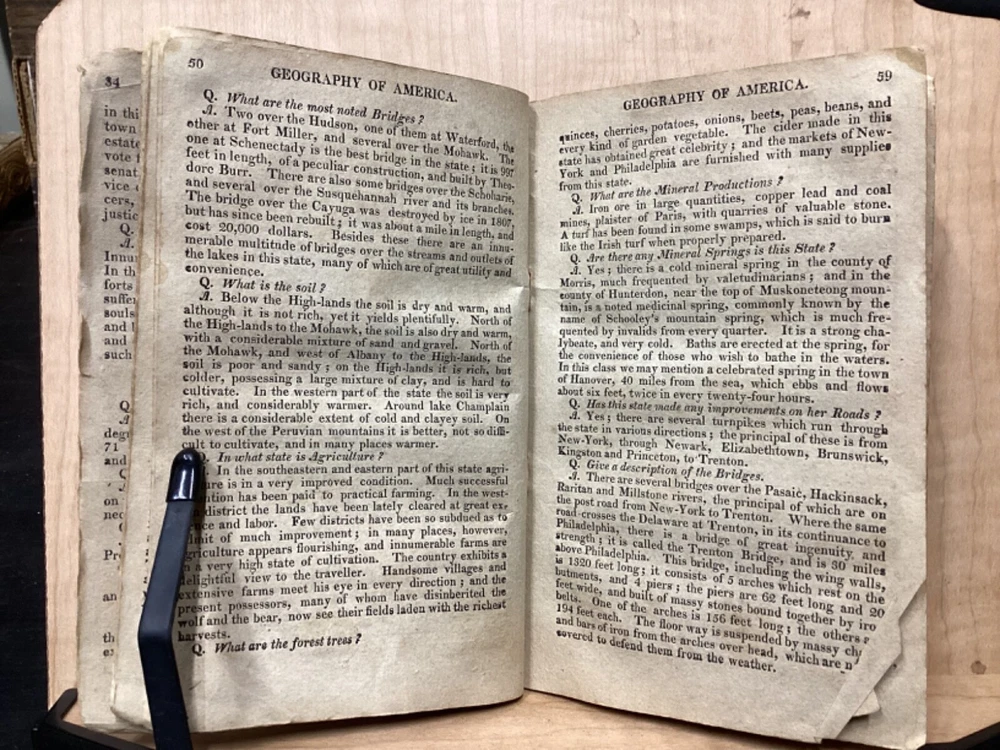 34
in thi
town
estate
vote f
senat
vice
cers,
justic
Q.
A.
Innu
In th
forts
suffe
souls
and l
and
such
Q
A
degr
71
and
on
nec
Pr
an
th
50
GEOGRAPHY OF AMERICA.
Q. What are the most noted Bridges ?
A. Two over the Hudson, one of them at Waterford, the
other at Fort Miller, and several over the Mohawk. The
one at Schenectady is the best bridge in the state ; it is 997
feet in length, of a peculiar construction, and built by Theo-
dore Burr. There are also some bridges over the Schoharie,
and several over the Susquehannah river and its branches.
The bridge over the Cayuga was destroyed by ice in 1807,
but has since been rebuilt ; it was about a mile in length, and
cost 20,000 dollars. Besides these there are an innu-
merable multitude of bridges over the streams and outlets of
the lakes in this state, many of which are of great utility and
convenience.
Q. What is the soil ?
A. Below the High-lands the soil is dry and warm, and
although it is not rich, yet it yields plentifully. North of
the High-lands to the Mohawk, the soil is also dry and warm,
with a considerable mixture of sand and gravel. North of
the Mohawk, and west of Albany to the High-lands, the
soil is poor and sandy ; on the High-lands it is rich, but
colder, possessing a large mixture of clay, and is hard to
cultivate. In the western part of the state the soil is very
rich, and considerably warmer. Around lake Champlain
there is a considerable extent of cold and clayey soil. On
the west of the Peruvian mountains it is better, not so diffi-
cult to cultivate, and in many places warmer.
Q. In what state is Agriculture ?
In the southeastern and eastern part of this state agri-
ure is in a very improved condition. Much successful
ntion has been paid to practical farming. In the west-
district the lands have been lately cleared at great ex-
nce and labor. Few districts have been so subdued as to
mit of much improvement ; in many places, however,
griculture appears flourishing, and innumerable farms are
a very high state of cultivation. The country exhibits a
delightful view to the traveller. Handsome villages and
extensive farms meet his eye in every direction ; and the
present possessors, many of whom have disinherited the
wolf and the bear, now see their fields laden with the richest
harvests.
Q. What are the forest trees ?
59
GEOGRAPHY OF AMERICA.
quinces, cherries, potatoes, onions, beets, peas, beans, and
every kind of garden vegetable. The cider made in this
state has obtained great celebrity ; and the markets of New-
York and Philadelphia are furnished with many supplies
from this state.
Q. What are the Mineral Productions ?
A. Iron ore in large quantities, copper lead and coal
mines, plaister of Paris, with quarries of valuable stone.
A turf has been found in some swamps, which is said to burn
like the Irish turf when properly prepared.
Q. Are there any Mineral Springs is this State ?
A. Yes ; there is a cold mineral spring in the county of
Morris, much frequented by valetudinarians ; and in the
county of Hunterdon, near the top of Muskonetcong moun-
tain, is a noted medicinal spring, commonly known by the
name of Schooley's mountain spring, which is much fre-
quented by invalids from every quarter. It is a strong cha-
lybeate, and very cold. Baths are erected at the spring, for
the convenience of those who wish to bathe in the waters.
In this class we may mention a celebrated spring in the town
of Hanover, 40 miles from the sea, which ebbs and flows
about six feet, twice in every twenty-four hours.
Q. Has this state made any improvements on her Roads ?
A. Yes ; there are several turnpikes which run through
the state in various directions ; the principal of these is from
New-York, through Newark, Elizabethtown, Brunswick,
Kingston and Princeton, to Trenton.
Q. Give a description of the Bridges.
A. There are several bridges over the Pasaic, Hackinsack,
Raritan and Millstone rivers, the principal of which are on
the post road from New-York to Trenton. Where the same
road crosses the Delaware at Trenton, in its continuance to
Philadelphia, there is a bridge of great ingenuity and
strength ; it is called the Trenton Bridge, and is 30 miles
above Philadelphia. This bridge, including the wing walls,
is 1320 feet long ; it consists of 5 arches which rest on the
butments, and 4 piers ; the piers are 62 feet long and 20
feet wide, and built of massy stones bound together by iro
belts. One of the arches is 156 feet long ; the others
194 feet each. The floor way is suspended by massy ch
and bars of iron from the arches over head, which are n
covered to defend them from the weather.